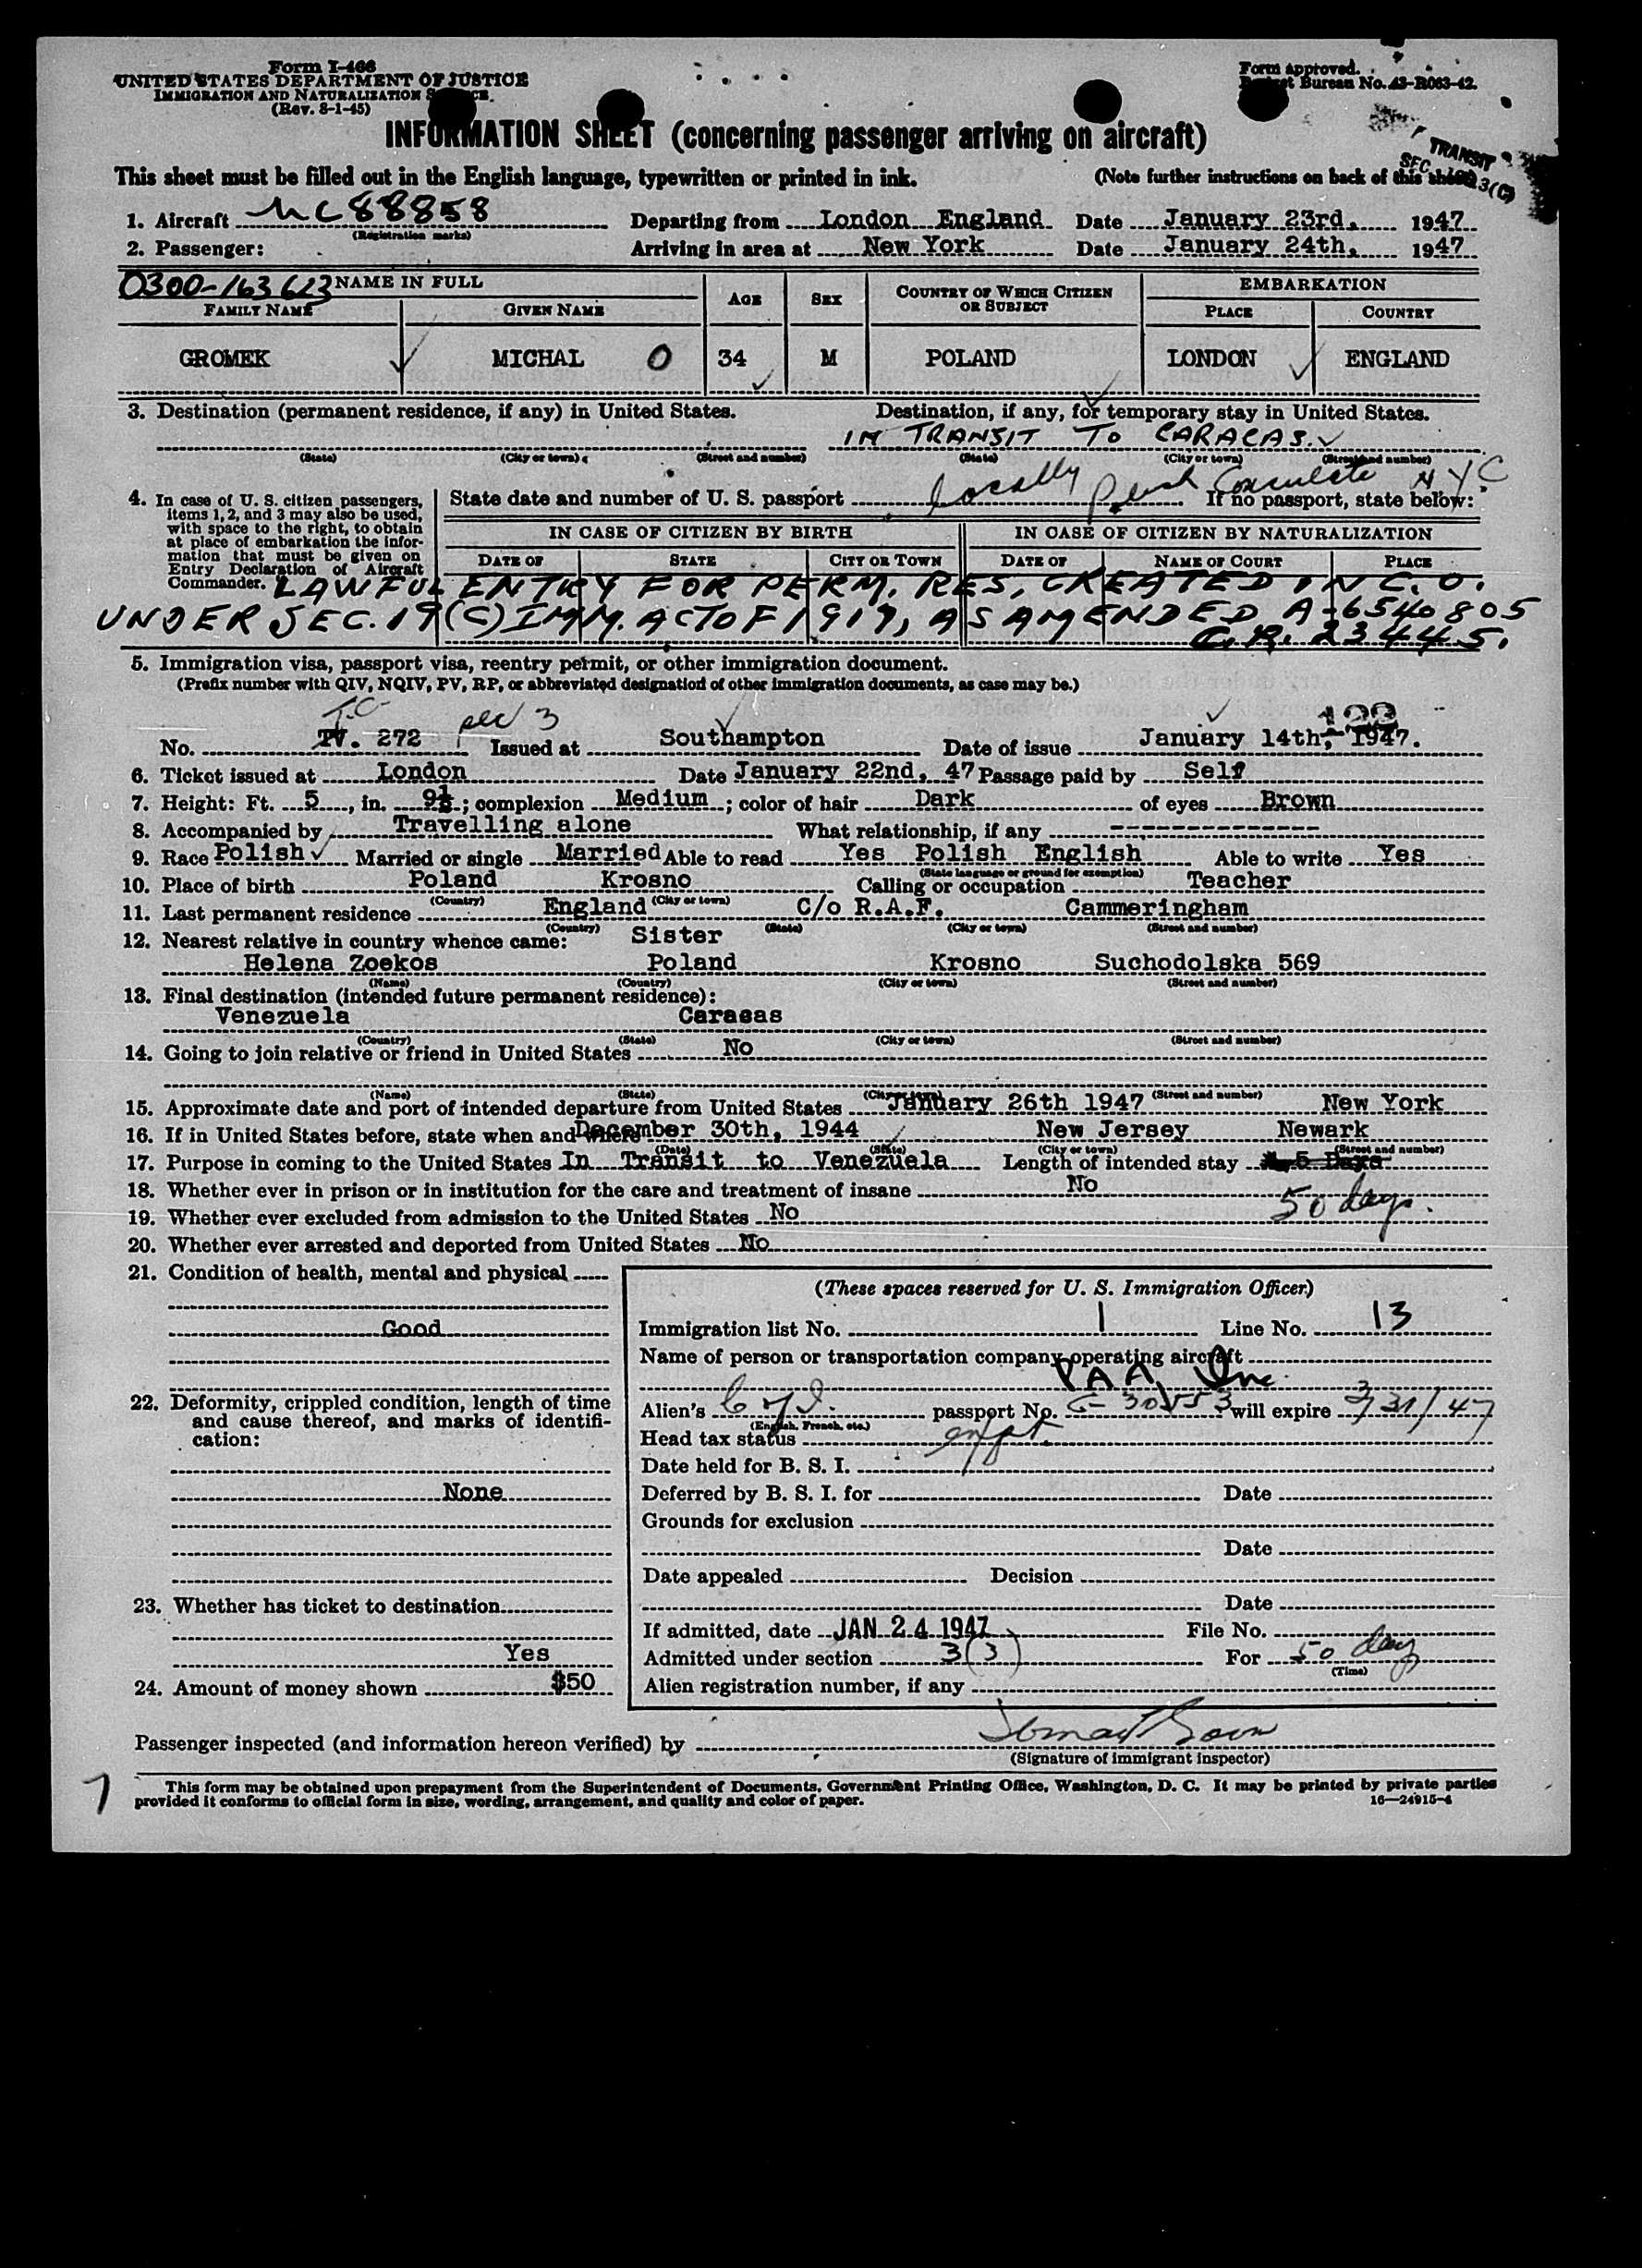 Form I-466
UNITED STATES DEPARTMENT OF JUSTICE
IMMIGRATION AND NATURALIZATION
(Rev. 8-1-45)
Form approved.
Bureau No. 43-R063-42.
INFORMATION SHEET (concerning passenger arriving on aircraft)
TRANSIT
SEC. 3(C)
This sheet must be filled out in the English language, typewritten or printed in ink. (Note further instructions on back of this sheet)
1. Aircraft NC88858 Departing from London England Date January 23rd, 1947
(Registration marks)
2. Passenger: Arriving in area at New York Date January 24th, 1947
0300-163613 NAME IN FULL AGE SEX COUNTRY OF WHICH CITIZEN OR SUBJECT EMBARKATION
FAMILY NAME GIVEN NAME PLACE COUNTRY
GROMEK MICHAL O 34 M POLAND LONDON ENGLAND
3. Destination (permanent residence, if any) in United States. Destination, if any, for temporary stay in United States.
IN TRANSIT TO CARACAS.
(State) (City or town) (Street and number) (State) (City or town) (Street and number)
locally Consulate NYC
4. In case of U. S. citizen passengers, items 1, 2, and 3 may also be used, with space to the right, to obtain at place of embarkation the information that must be given on Entry Declaration of Aircraft Commander.
State date and number of U. S. passport If no passport, state below:
IN CASE OF CITIZEN BY BIRTH IN CASE OF CITIZEN BY NATURALIZATION
DATE OF STATE CITY OR TOWN DATE OF NAME OF COURT PLACE
LAWFUL ENTRY FOR PERM. RES. CREATED IN C.O.
UNDER SEC. 19(C) IMM. ACT OF 1917, AS AMENDED A-6540805
C.R. 23445.
5. Immigration visa, passport visa, reentry permit, or other immigration document.
(Prefix number with QIV, NQIV, PV, RP, or abbreviated designation of other immigration documents, as case may be.)
T.C. sec 3 122
No. TV. 272 Issued at Southampton Date of issue January 14th, 1947.
6. Ticket issued at London Date January 22nd, 47 Passage paid by Self
7. Height: Ft. 5, in. 9½; complexion Medium; color of hair Dark of eyes Brown
8. Accompanied by Travelling alone What relationship, if any -------------
9. Race Polish Married or single Married Able to read Yes Polish English Able to write Yes
(State language or ground for exemption)
10. Place of birth Poland Krosno Calling or occupation Teacher
(Country) (City or town)
11. Last permanent residence England C/o R.A.F. Cammeringham
(Country) (State) (City or town) (Street and number)
12. Nearest relative in country whence came: Sister
Helena Zoekos Poland Krosno Suchodolska 569
(Name) (Country) (City or town) (Street and number)
13. Final destination (intended future permanent residence):
Venezuela Caracas
(Country) (State) (City or town) (Street and number)
14. Going to join relative or friend in United States No
(Name) (State) (City or town) (Street and number)
15. Approximate date and port of intended departure from United States January 26th 1947 New York
16. If in United States before, state when and where December 30th, 1944 New Jersey Newark
(Date) (State) (City or town) (Street and number)
17. Purpose in coming to the United States In Transit to Venezuela Length of intended stay 5 Days
18. Whether ever in prison or in institution for the care and treatment of insane No
50 days.
19. Whether ever excluded from admission to the United States No
20. Whether ever arrested and deported from United States No
21. Condition of health, mental and physical
Good
22. Deformity, crippled condition, length of time and cause thereof, and marks of identification:
None
23. Whether has ticket to destination
Yes
24. Amount of money shown $50
(These spaces reserved for U. S. Immigration Officer)
Immigration list No. 1 Line No. 13
Name of person or transportation company operating aircraft
PAA, Inc.
Alien's passport No. G-30553 will expire 3/31/47
(English, French, etc.)
Head tax status
Date held for B. S. I.
Deferred by B. S. I. for Date
Grounds for exclusion
Date
Date appealed Decision
Date
If admitted, date JAN 24 1947 File No.
Admitted under section 3(3) For 50 days
(Time)
Alien registration number, if any
Passenger inspected (and information hereon verified) by
(Signature of immigrant inspector)
7
This form may be obtained upon prepayment from the Superintendent of Documents, Government Printing Office, Washington, D. C. It may be printed by private parties
provided it conforms to official form in size, wording, arrangement, and quality and color of paper. 16—24915-4